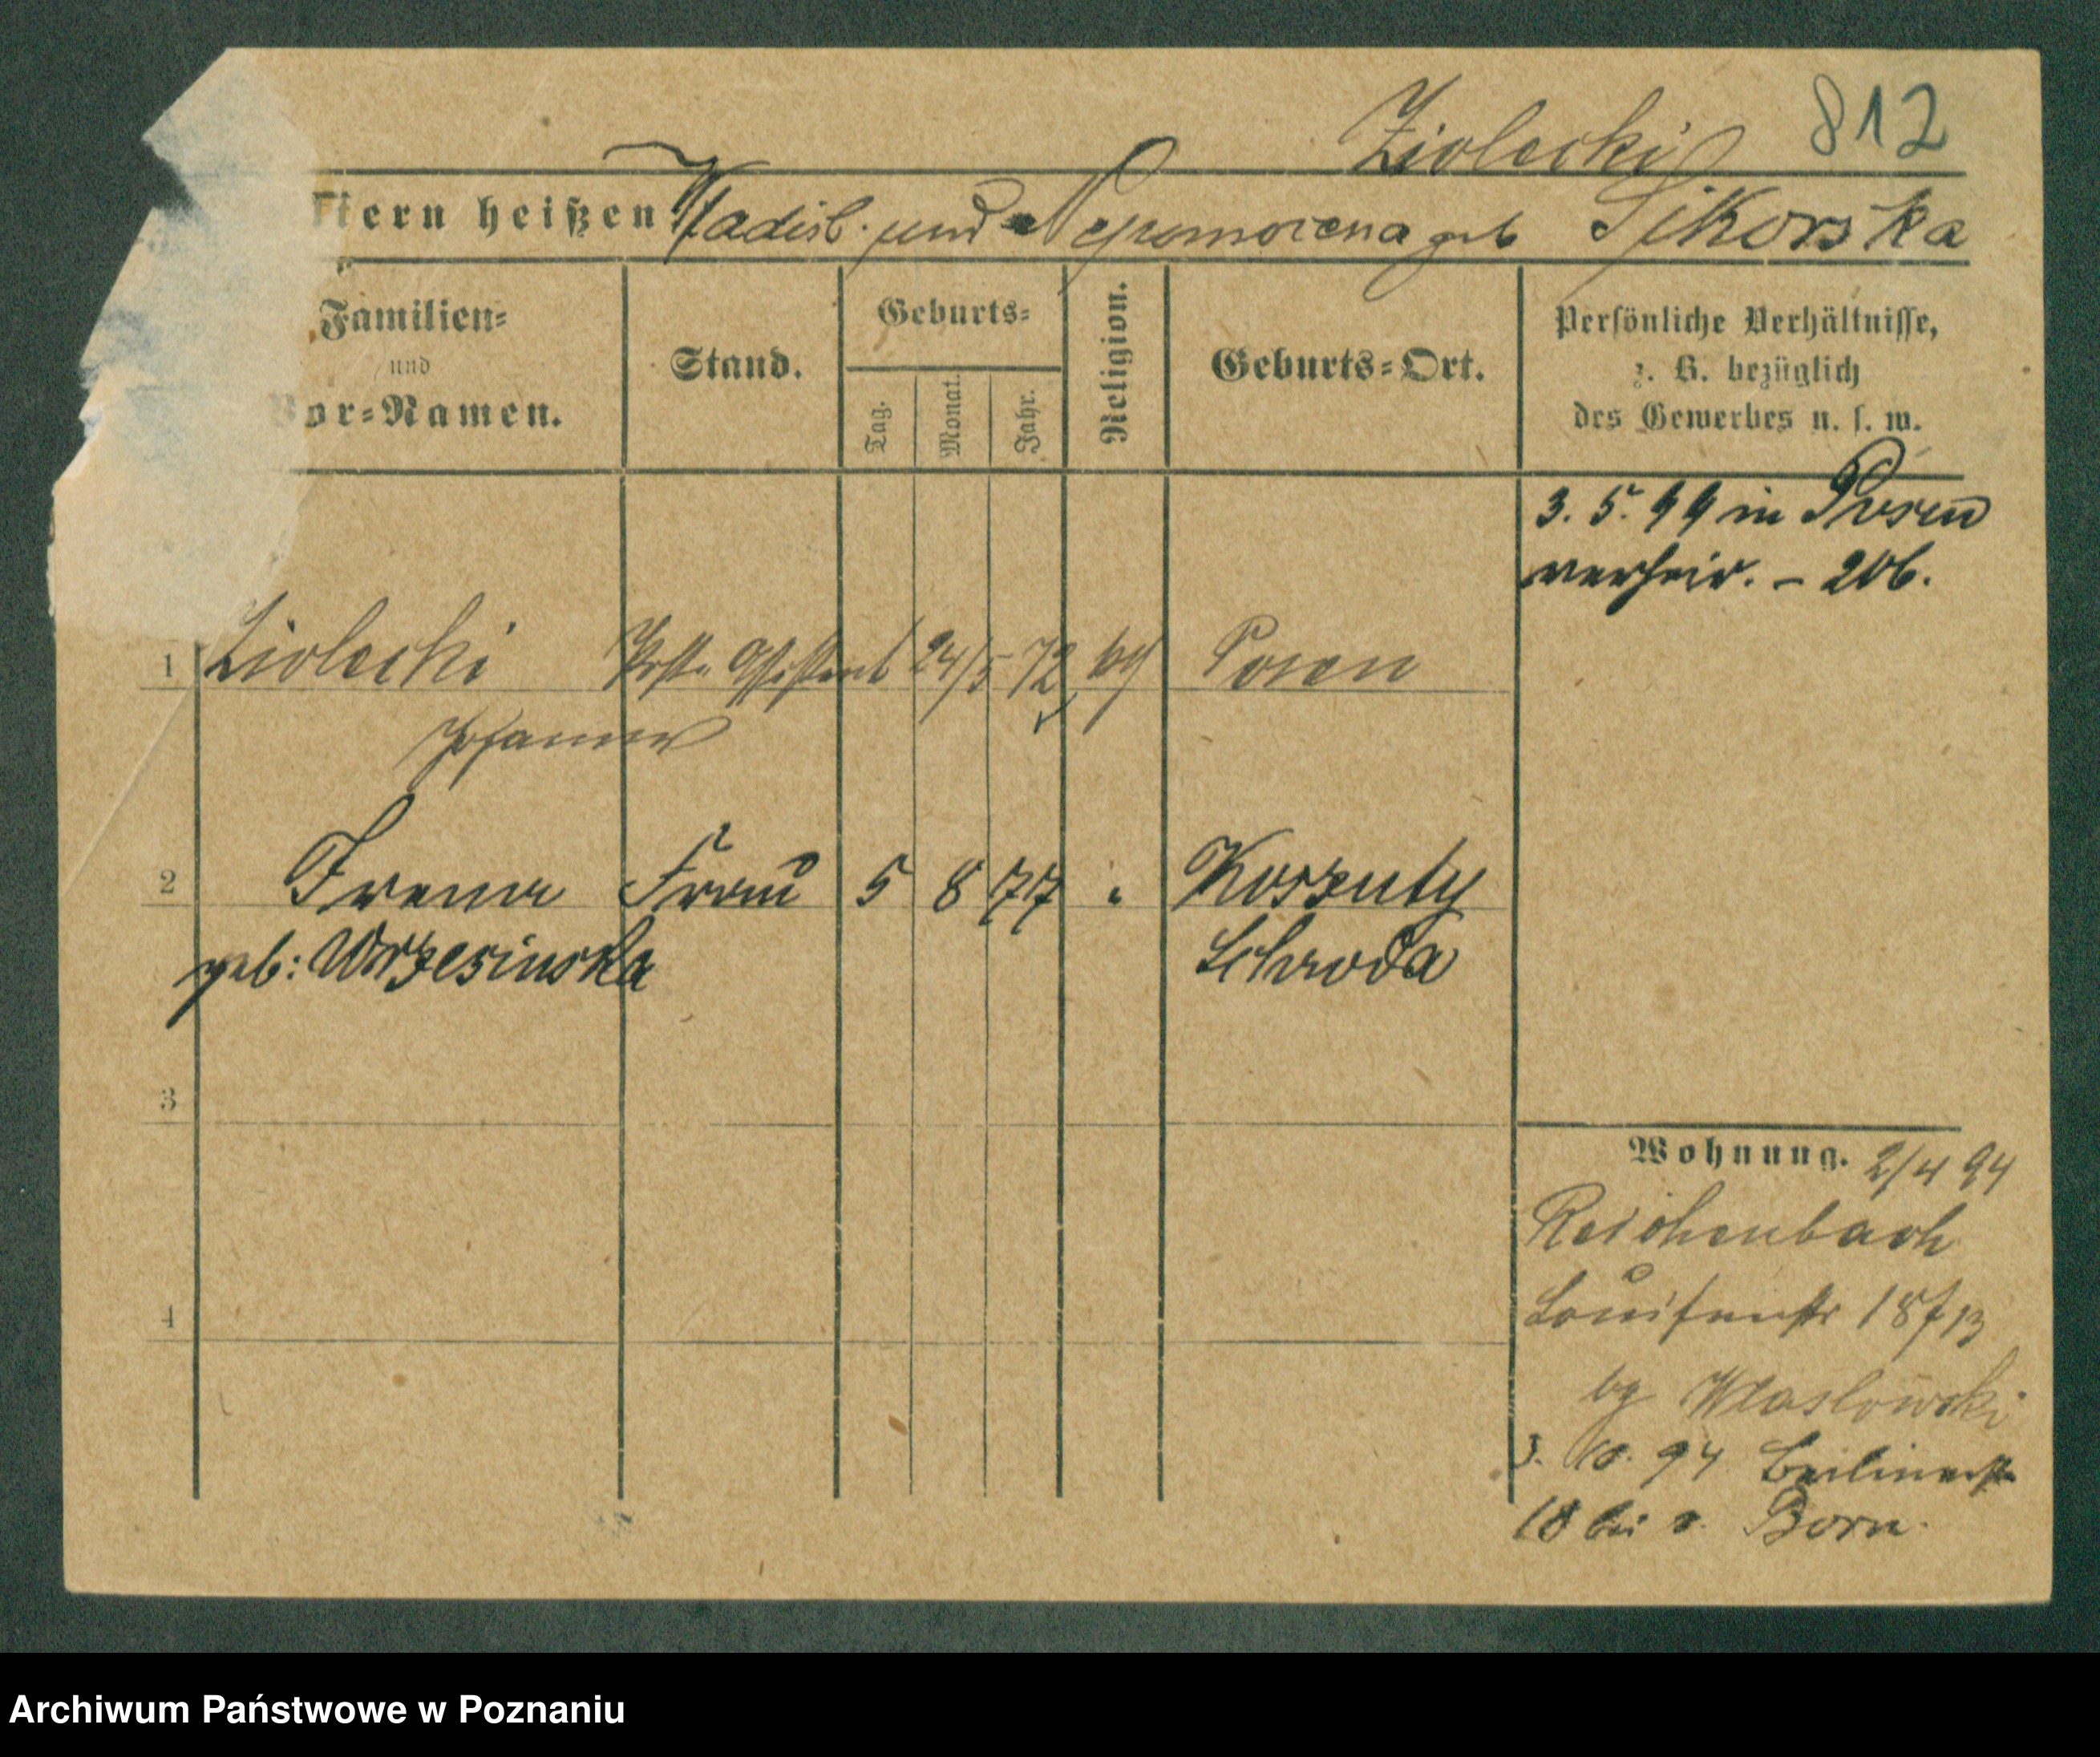 Ziolecki 812
ltern heißen Wladisl. und Nepomocena geb Sikorska
Familien=
und
Vor=Namen.
Stand.
Geburts=
Tag.
Monat.
Jahr.
Religion.
Geburts=Ort.
Persönliche Verhältnisse,
z. B. bezüglich
des Gewerbes u. s. w.
3. 5. 99 in Posen
verheir. – 206.
1 Ziolecki Post Assistent 24/5 72 Posen
Johannes
2 Irena Frau 5 8 77 " Koszuty
geb: Wrzesinska Schroda
3
4
Wohnung. 2/4 94
Reichenbach
Louisenstr 18
3. 10. 94 Berlinerstr
18 bei v. Born.
Archiwum Państwowe w Poznaniu